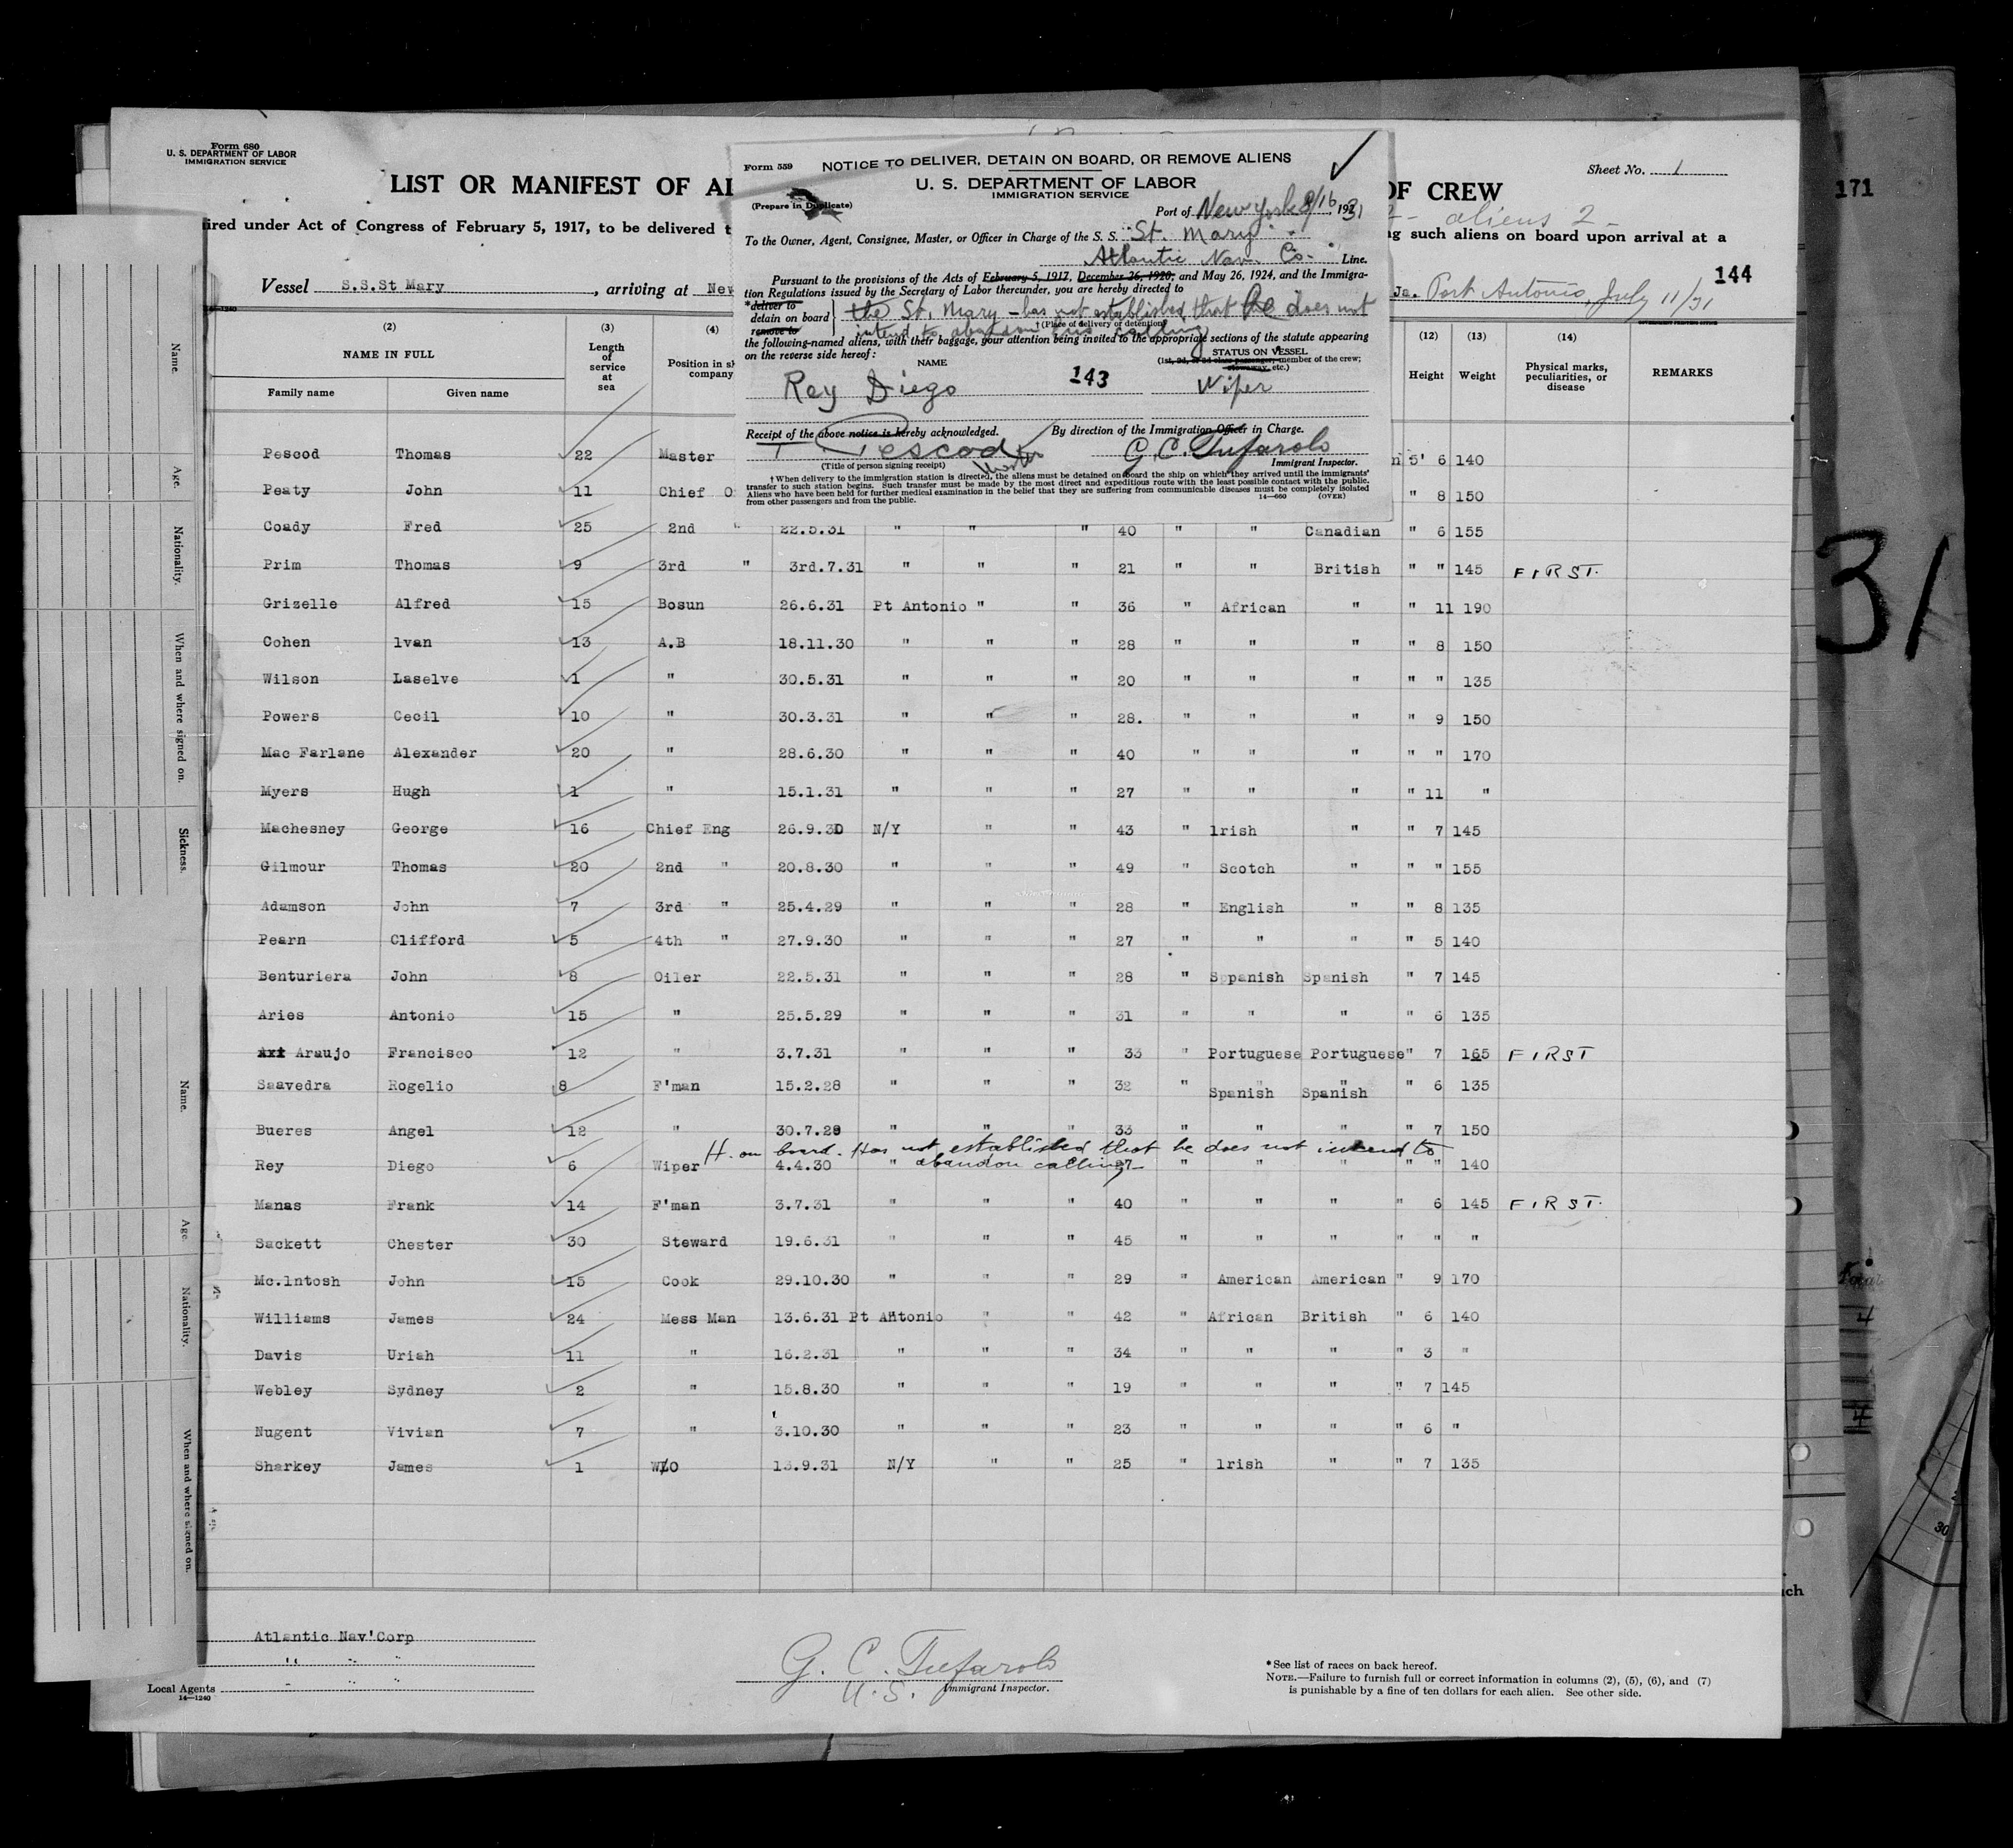 Form 680
U. S. DEPARTMENT OF LABOR
IMMIGRATION SERVICE
LIST OR MANIFEST OF AL
OF CREW
Sheet No. 1
171
aliens 2
ired under Act of Congress of February 5, 1917, to be delivered t
g such aliens on board upon arrival at a
144
Vessel S.S.St Mary, arriving at New
Ja. Port Antonio, July 11/31
14—1240
Form 559
NOTICE TO DELIVER, DETAIN ON BOARD, OR REMOVE ALIENS
U. S. DEPARTMENT OF LABOR
IMMIGRATION SERVICE
(Prepare in Duplicate)
Port of New York 8/16, 1931
To the Owner, Agent, Consignee, Master, or Officer in Charge of the S. S. "St. Mary"
Atlantic Nav. Co. Line.
Pursuant to the provisions of the Acts of February 5, 1917, December 26, 1920, and May 26, 1924, and the Immigra-
tion Regulations issued by the Secretary of Labor thereunder, you are hereby directed to
*deliver to
detain on board
remove to
the St. Mary - has not established that he does not
intend to abandon his calling
†(Place of delivery or detention)
the following-named aliens, with their baggage, your attention being invited to the appropriate sections of the statute appearing
on the reverse side hereof:
NAME
STATUS ON VESSEL
(1st, 2d, or 3d class passenger, member of the crew;
stowaway, etc.)
Rey Diego 143 Wiper
Receipt of the above notice is hereby acknowledged.
By direction of the Immigration Officer in Charge.
T Pescod
Master
(Title of person signing receipt)
G. C. Tufarolo
Immigrant Inspector.
† When delivery to the immigration station is directed, the aliens must be detained on board the ship on which they arrived until the immigrants'
transfer to such station begins. Such transfer must be made by the most direct and expeditious route with the least possible contact with the public.
Aliens who have been held for further medical examination in the belief that they are suffering from communicable diseases must be completely isolated
from other passengers and from the public.
14—660 (OVER)
(2) (3) (4) (12) (13) (14)
NAME IN FULL
Family name Given name
Length of service at sea
Position in sh
company
Height Weight
Physical marks, peculiarities, or disease
REMARKS
Pescod Thomas 22 Master n 5' 6 140
Peaty John 11 Chief O " 8 150
Coady Fred 25 2nd " 22.5.31 " " " 40 " " Canadian " 6 155
Prim Thomas 9 3rd " 3rd.7.31 " " " 21 " " British " " 145 FIRST.
Grizelle Alfred 15 Bosun 26.6.31 Pt Antonio " " 36 " African " " 11 190
Cohen lvan 13 A.B 18.11.30 " " " 28 " " " " 8 150
Wilson Laselve 1 " 30.5.31 " " " 20 " " " " " 135
Powers Cecil 10 " 30.3.31 " " " 28. " " " " 9 150
Mac Farlane Alexander 20 " 28.6.30 " " " 40 " " " " " 170
Myers Hugh 1 " 15.1.31 " " " 27 " " " " 11 "
Machesney George 16 Chief Eng 26.9.30 N/Y " " 43 " lrish " " 7 145
Gilmour Thomas 20 2nd " 20.8.30 " " " 49 " Scotch " " " 155
Adamson John 7 3rd " 25.4.29 " " " 28 " English " " 8 135
Pearn Clifford 5 4th " 27.9.30 " " " 27 " " " " 5 140
Benturiera John 8 Oiler 22.5.31 " " " 28 " Sppanish Spanish " 7 145
Aries Antonio 15 " 25.5.29 " " " 31 " " " " 6 135
Araujo Francisco 12 " 3.7.31 " " " 33 " Portuguese Portuguese " 7 165 FIRST
Saavedra Rogelio 8 F'man 15.2.28 " " " 32 " Spanish Spanish " 6 135
Bueres Angel 12 " 30.7.29 " " " 33 " " " " 7 150
H. on board. Has not established that he does not intend to
abandon calling
Rey Diego 6 Wiper 4.4.30 " 27 " " " " " 140
Manas Frank 14 F'man 3.7.31 " " " 40 " " " " 6 145 FIRST.
Sackett Chester 30 Steward 19.6.31 " " " 45 " " " " " "
Mc.lntosh John 15 Cook 29.10.30 " " " 29 " American American " 9 170
Williams James 24 Mess Man 13.6.31 Pt Antonio " " 42 " African British " 6 140
Davis Uriah 11 " 16.2.31 " " " 34 " " " " 3 "
Webley Sydney 2 " 15.8.30 " " " 19 " " " " 7 145
Nugent Vivian 7 " 3.10.30 " " " 23 " " " " 6 "
Sharkey James 1 W/O 13.9.31 N/Y " " 25 " lrish " " 7 135
Name.
Age.
Nationality.
When and where signed on.
Sickness.
Name.
Age.
Nationality.
When and where signed on.
31
Total
4
4
30
ch
Atlantic Nav'Corp
" " "
Local Agents
14—1240
G. C. Tufarolo
U.S. Immigrant Inspector.
*See list of races on back hereof.
NOTE.—Failure to furnish full or correct information in columns (2), (5), (6), and (7)
is punishable by a fine of ten dollars for each alien. See other side.